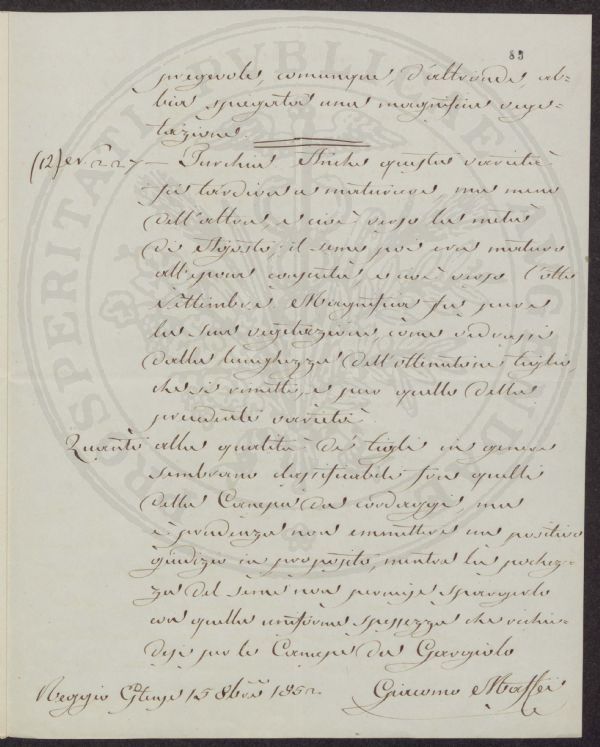 83
pregevole, comunque, d'altronde, ab-
bia spiegata una magnifica vege-
tazione.
(12)
Turchia Anche questa varietà
fu tardiva a maturare, ma meno
dell'altra, e cioè verso la metà
di Agosto; il seme poi era maturo
all'epoca consueta, e cioè verso l'otto
Settembre. Magnifica fu pure
la sua vegetazione, come vedrassi
dalla lunghezza dell'ottenutone tiglio,
che si rimette, e pur quello della
precedente varietà.
Quanto alla qualità dei tigli in genere
sembrano classificabili fra quelli
della Canepa da cordaggi, ma
è prudenza non emmettere un positivo
giudizio in proposito, mentre la pochez-
za del seme non permise spargerlo
con quella uniforme spessezza che richie-
desi per le Canepe da Gargiolo
Reggio 15 8bre 1852.
Giacomo Maffei
PROSPERITATI PUBLICAE